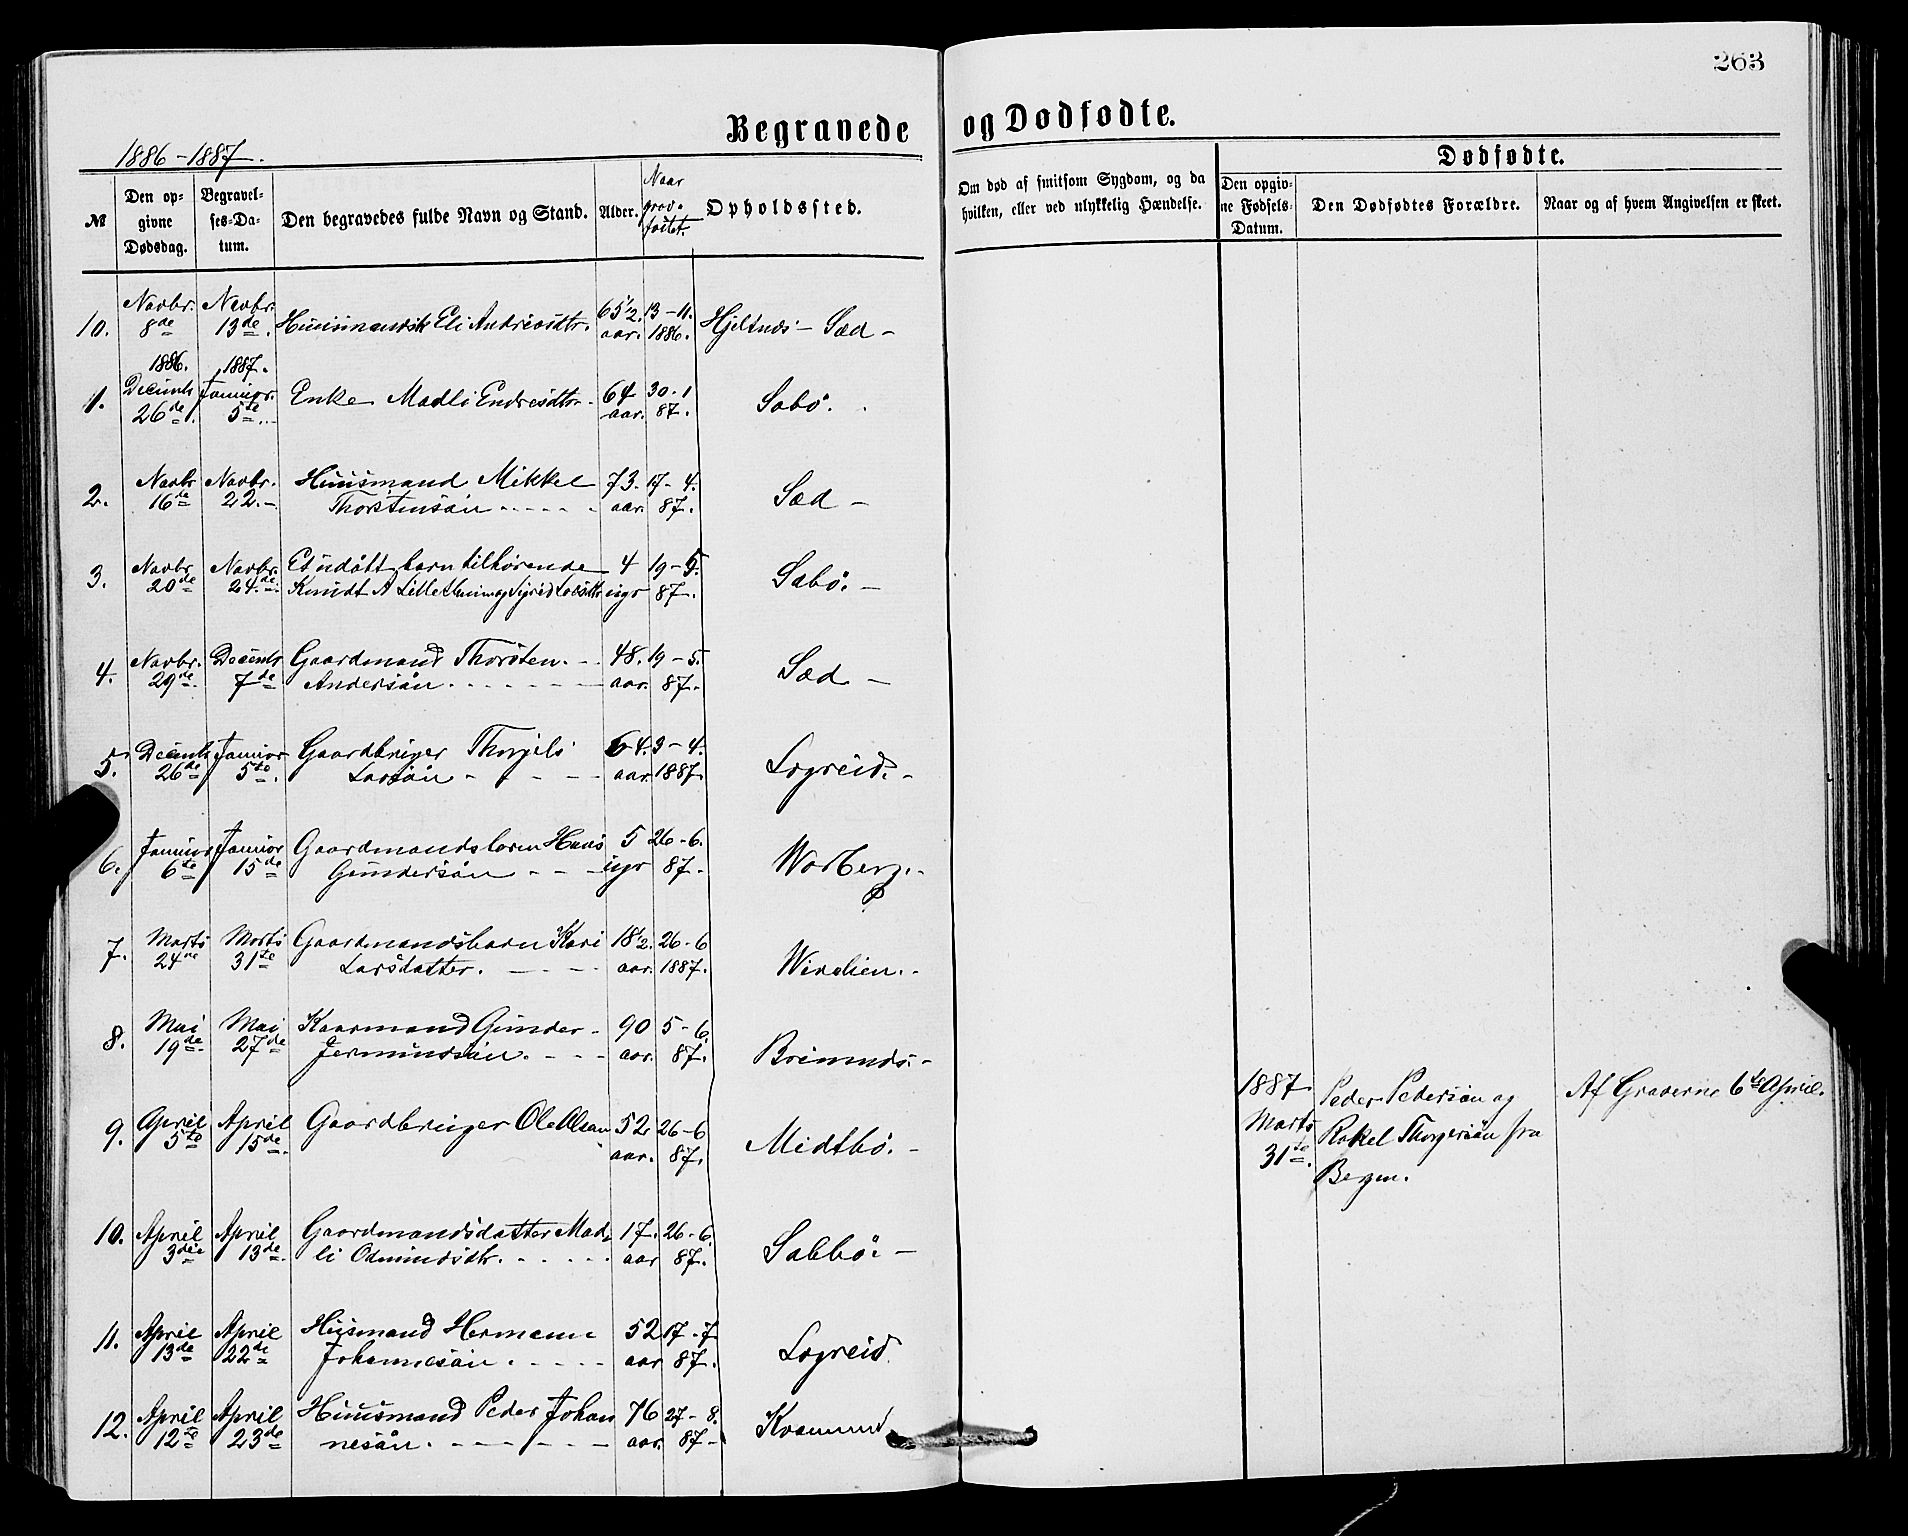 263
Begravede og Dødfødte.
1886-1887.
Dødfødte.
№
Den op-
givne
Dødsdag.
Begravel-
ses-Da-
tum.
Den begravedes fulde Navn og Stand.
Alder.
Naar
Opholdssted.
Om død af smitsom Sygdom, og da
hvilken, eller ved ulykkelig Hændelse.
Den opgiv-
ne Fødsels-
Datum.
Den Dødfødtes Forældre.
Naar og af hvem Angivelsen er skeet.
Novbr. Novbr. 65½ 13-11.
10. 8de 13de Eli Andrèasdtr. aar. 1886. Hjeltnes- Sæd-
1886. 1887.
Decemb Januar. 64 30-1
1. 26de 5te Enke Madli Endresdtr. aar. 87. Sæbö.
Novbr Novbr. Huusmand Mikkel 73. 17-4.
2. 16de 22. Thorstensön aar. 87. Sæd-
Novbr. Novbr. Et udöbt barn tilhörende 4 19-5.
3. 20de 24de Knudt A Sigrid 87. Sæbö.-
Novbr. Decemb Gaardmand Thorsten 48. 19-5.
4. 29de 7de Andersön aar. 87. Sæd-
Decemb Januar Gaardbruger Thorgils 64. 3-4.
5. 26de 5te. Larsön aar. 1887. Legreid.-
Januar Januar Gaardmandsbarn Hans 5 26-6.
6. 6te 15de Gundersön 87. Warberg.-
Marts Marts Gaardmandsbarn Kari 18½. 26-6
7. 24de 31te Larsdatter. aar. 1887. Windien.-
Mai Mai Kaarmand Gunder- 90 5-6.
8. 19de 27de Jermundsön. aar. 87. Brimnes.-
April April Gaardbruger Ole Olsön 52 26-6
9. 5te 15de. aar. 87. Midtbö.-
1887
Marts
31te.
Peder Pedersön og
Rakel Thorgersön fra
Bergen.
Af Graverne 6te April.
10. April April Gaardmandsdatter Mad- 17. 26-6.
3die 13de li Odmundsdtr. aar 87. Sæbbö.-
11. April April Huusmand Hermann 52 17-7
13de 22de Johannesön. aar 87. Legreid.
12. April April Huusmand Peder Johan 76 27-8.
12te 23de nesön. aar. 87-